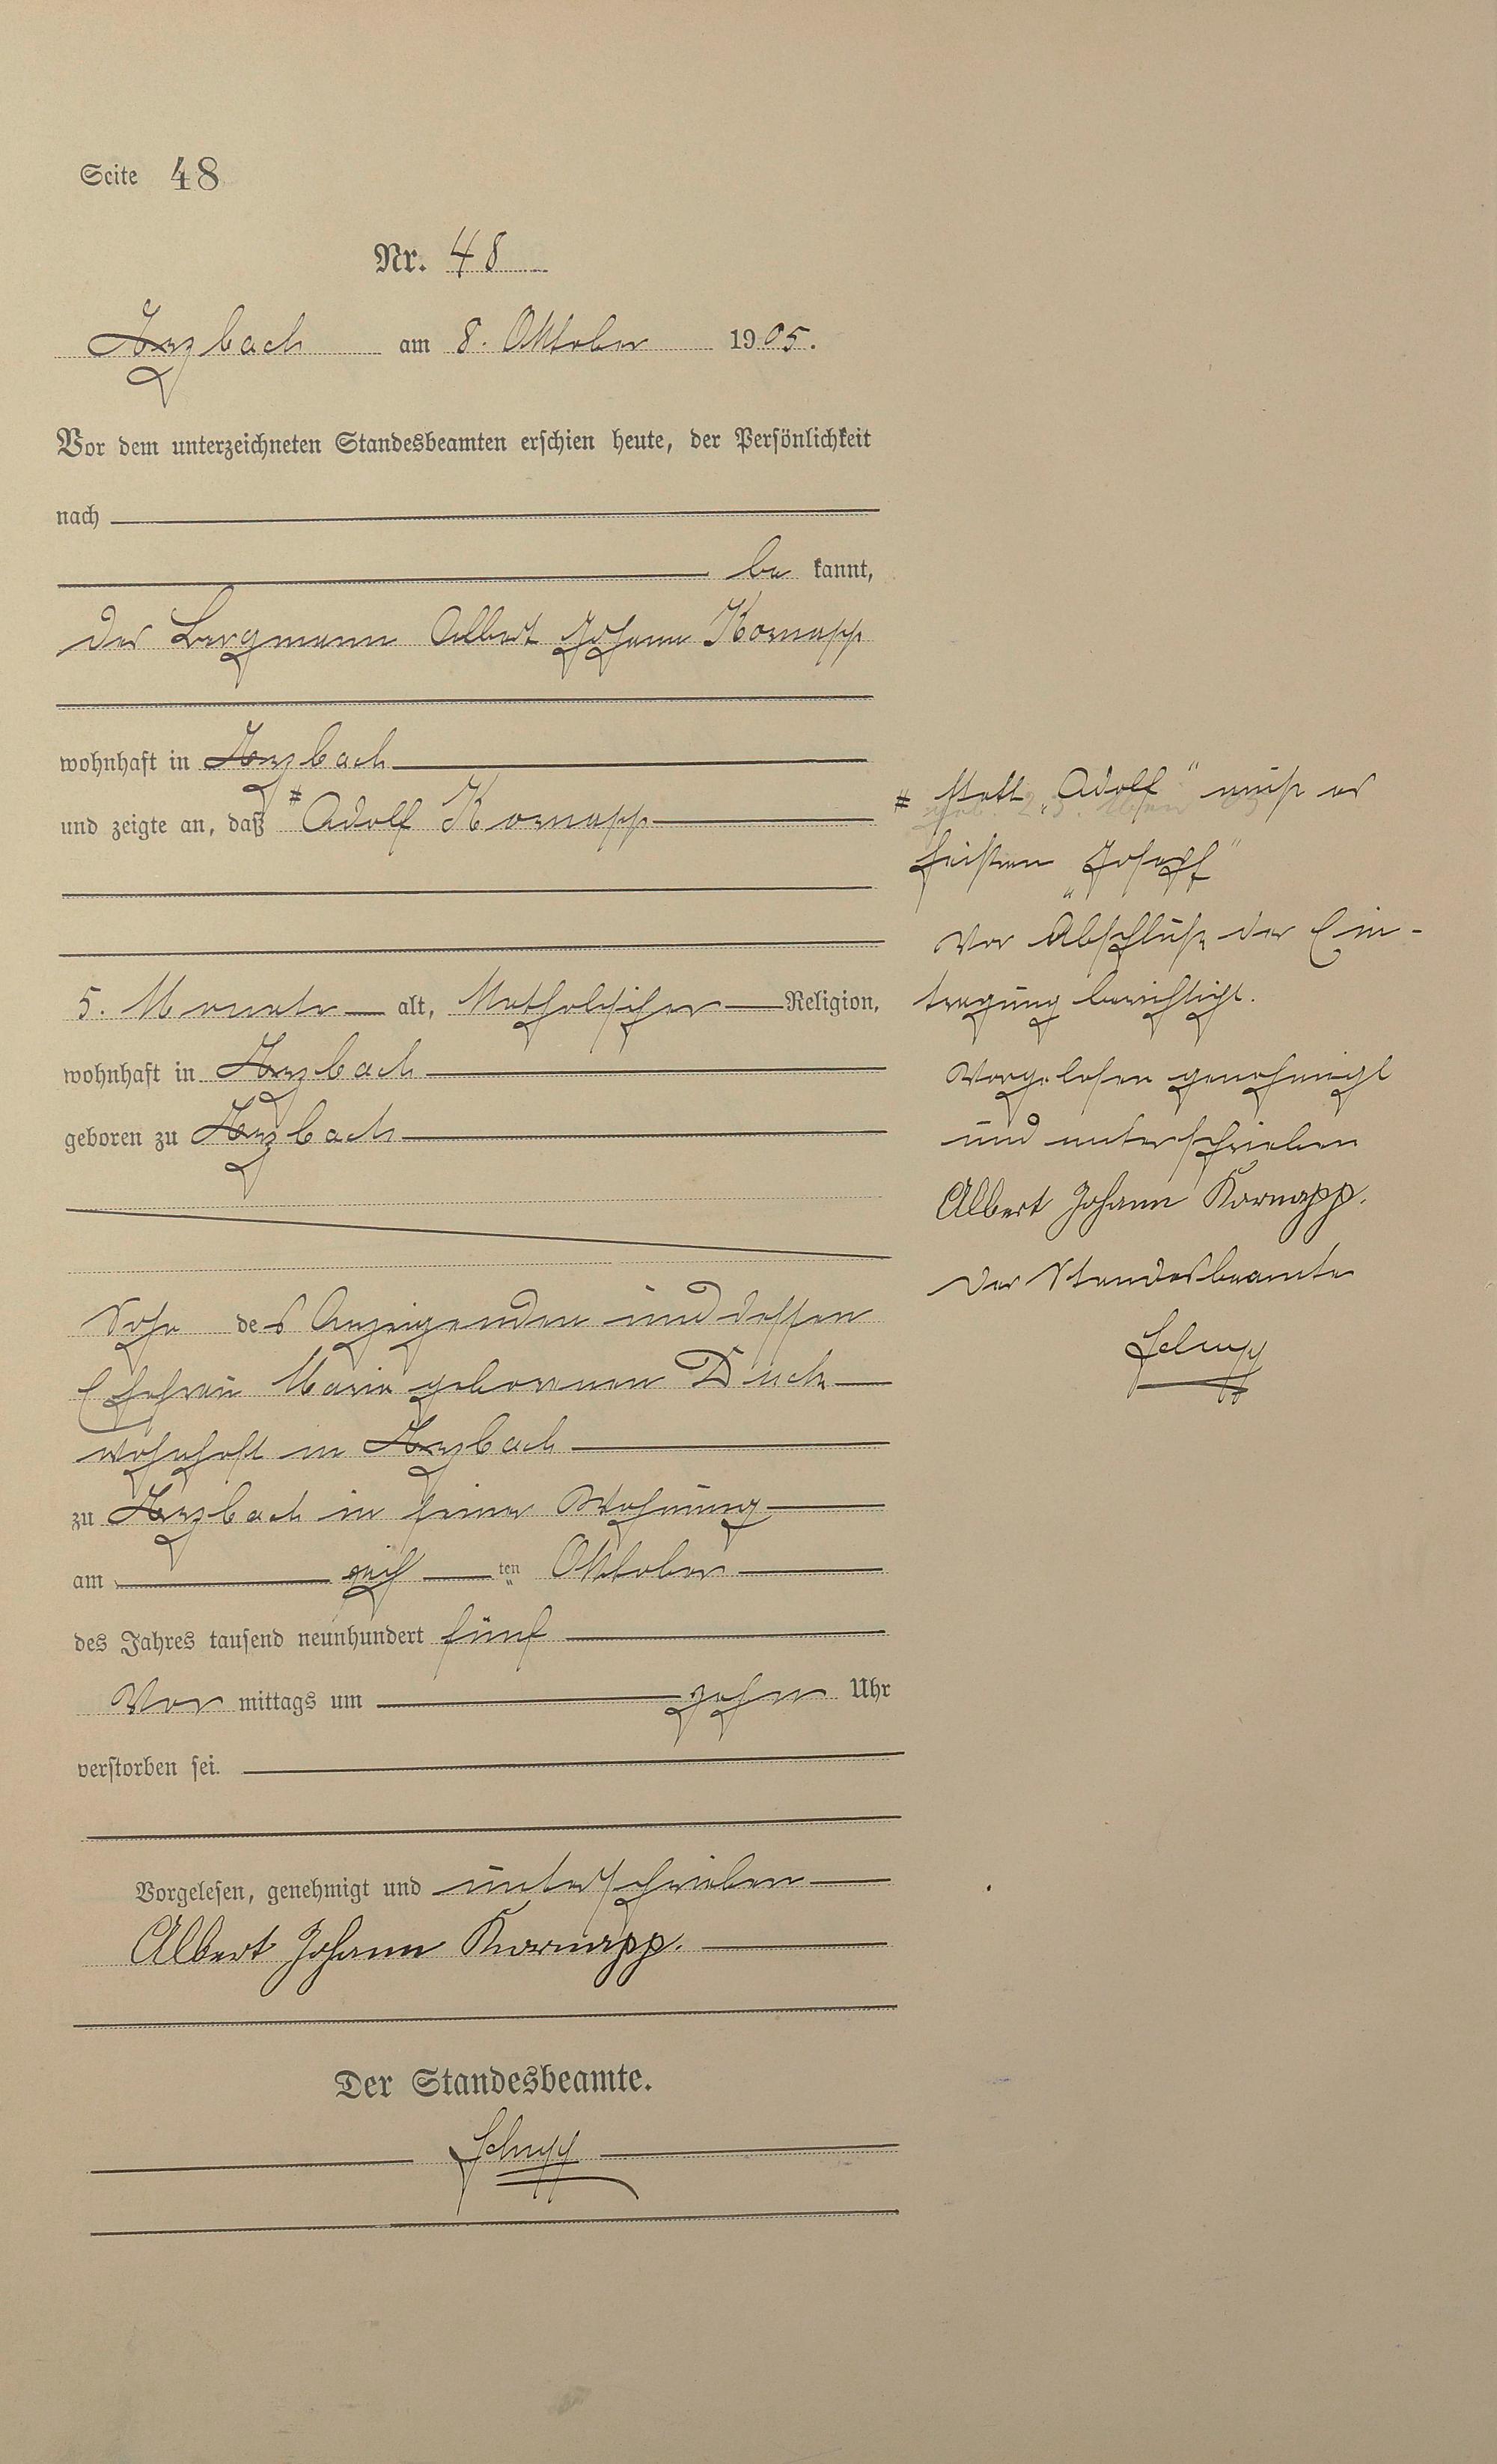 Seite 48
Nr. 48
Arzbach am 8. Oktober 1905.
Vor dem unterzeichneten Standesbeamten erschien heute, der Persönlichkeit
nach
be kannt,
der Bergmann Albert Johann Kornapp
wohnhaft in Arzbach
und zeigte an, daß # Adolf Kornapp
5. Monate alt, katholischer Religion,
wohnhaft in Arzbach
geboren zu Arzbach
Sohn des Anzeigenden und dessen
Ehefrau Maria geborenen
wohnhaft in Arzbach
zu Arzbach in seiner Wohnung
am ten Oktober
des Jahres tausend neunhundert fünf
Vor mittags um zehn Uhr
verstorben sei.
Vorgelesen, genehmigt und unterschrieben
Albert Johann Kornapp.
Der Standesbeamte.
Schupp
# Statt „Adolf“ muß es
heißen „Joseph“
Vor Abschluß der Ein-
tragung berichtigt.
Vorgelesen genehmigt
und unterschrieben
Albert Johann Kornapp.
Der Standesbeamte
Schupp